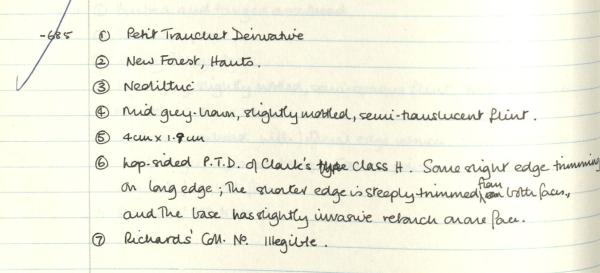 -685 ① Petit Tranchet Derivative
② New Forest, Hants.
③ Neolithic
④ Mid grey-brown, slightly mottled, semi-translucent flint.
⑤ 4cm x 1.9cm
⑥ Lop-sided P.T.D. of Clark's type Class H. Some slight edge trimming
on long edge; The shorter edge is steeply-trimmed from both faces,
and The base has slightly invasive retouch on one face.
⑦ Richards' Coll. No. Illegible.